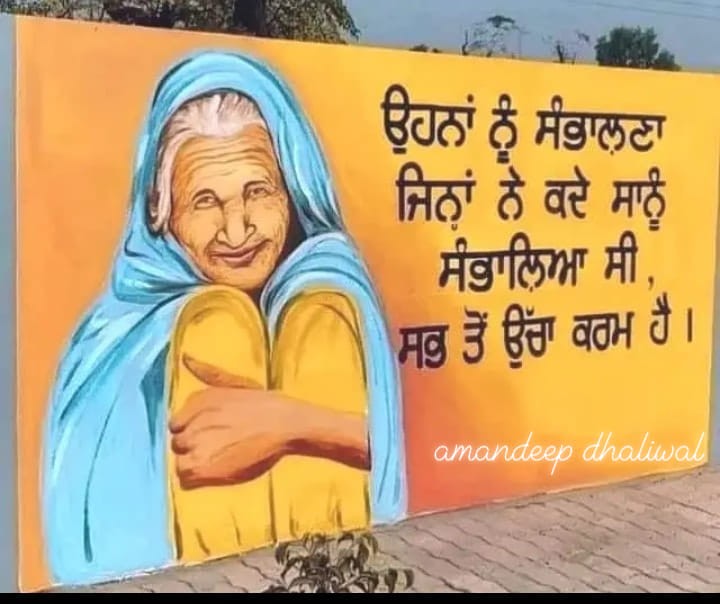 ਉਹਨਾਂ ਨੂੰ ਸੰਭਾਲਣਾ
ਜਿਨ੍ਹਾਂ ਨੇ ਕਦੇ ਸਾਨੂੰ
ਸੰਭਾਲਿਆ ਸੀ ,
ਸਭ ਤੋਂ ਉੱਚਾ ਕਰਮ ਹੈ ।
amandeep dhaliwal